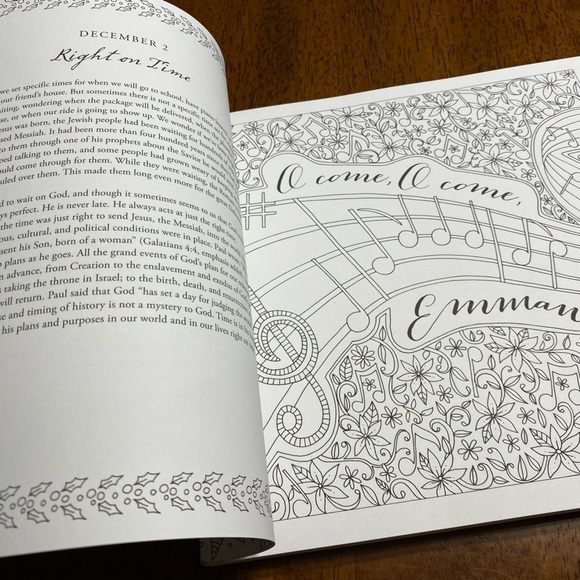 DECEMBER 2
Right on Time
we set specific times for when we will go to school, have
our friend's house. But sometimes there is not a specific time
wondering when the package will be delivered,
or when our ride is going to show up. We wonder when
was born, the Jewish people had been waiting for
Messiah. It had been more than four hundred
to them through one of his prophets about the Savior he
talking to them, and some people had grown weary of
come through for them. While they were waiting, the
over them. This made them long even more for the
to wait on God, and though it sometimes seems to us that God
perfect. He is never late. He always acts at just the right
the time was just right to send Jesus, the Messiah, into the
cultural, and political conditions were in place. Paul
his Son, born of a woman" (Galatians 4:4, emphasis
plans as he goes. All the grand events of God's plan for
advance, from Creation to the enslavement and exodus of
taking the throne in Israel; to the birth, death, and
will return. Paul said that God "has set a day for judging the
and timing of history is not a mystery to God. Time is in
his plans and purposes in our world and in our lives right
O come, O come,
Emman